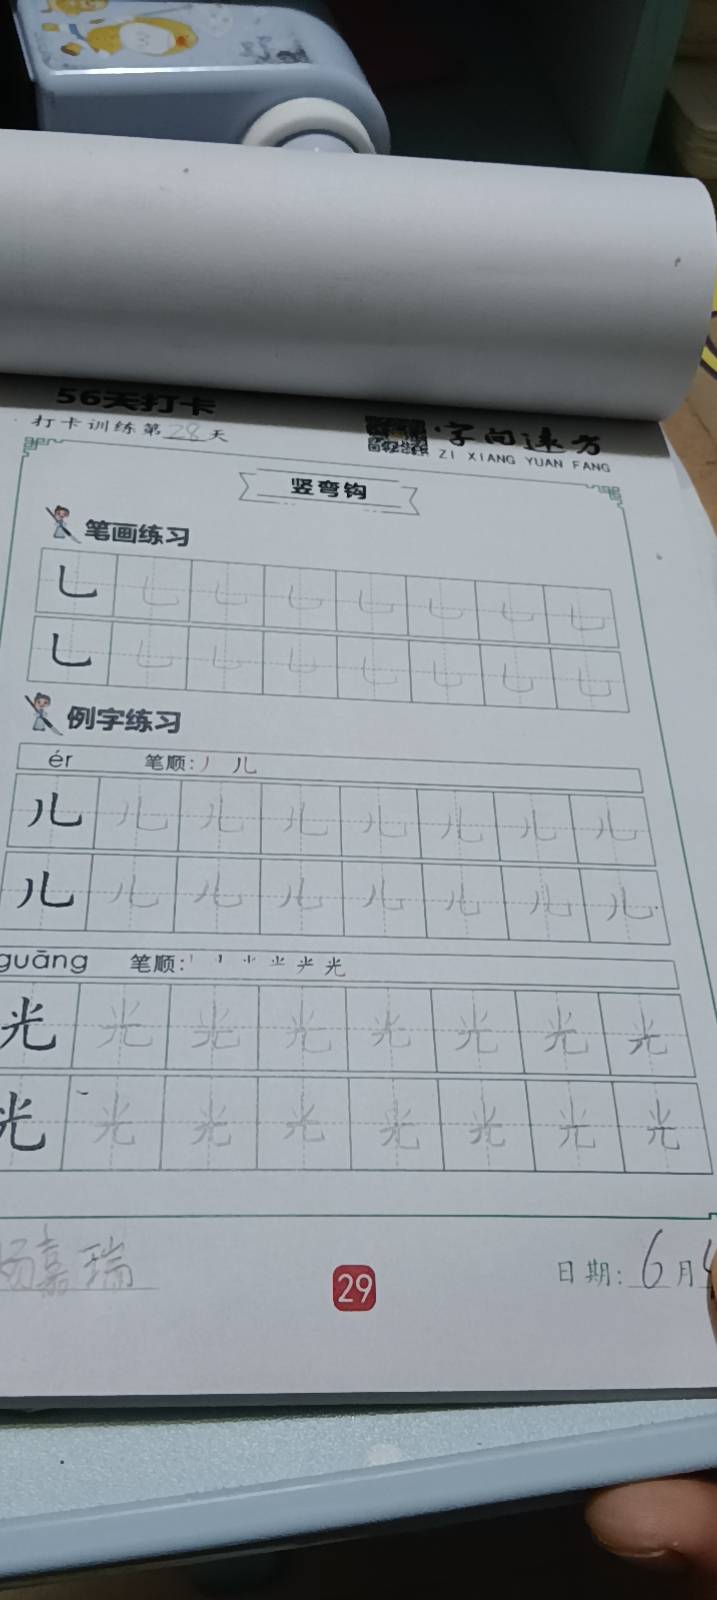 56天打卡
打卡训练第28天
字向远方
ZI XIANG YUAN FANG
竖弯钩
笔画练习
乚 乚 乚 乚 乚 乚 乚 乚
乚 乚 乚 乚 乚 乚 乚 乚
例字练习
ér 笔顺: 丿 儿
儿 儿 儿 儿 儿 儿 儿 儿
儿 儿 儿 儿 儿 儿 儿 儿
guāng 笔顺:
光 光 光 光 光 光 光 光
光 光 光 光 光 光 光 光
杨嘉瑞
29
日期: 6月